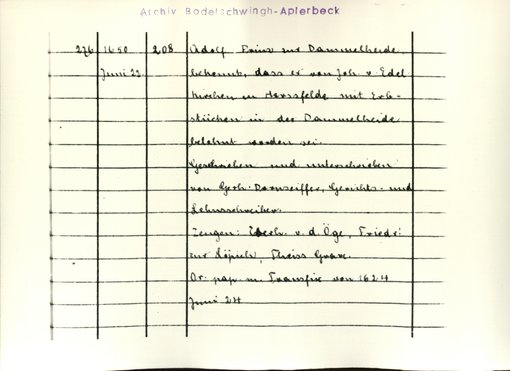 Archiv Bodelschwingh-Aplerbeck
276 1650 208 Adolf Prinz zur Dammelheide,
Juni 22. bekennt, dass er von Joh. v. Edel
kirchen zu Herssfelde mit Erb-
stücken in der Dammelheide
belehnt worden sei.
Geschrieben und unterschrieben
von Gerh. Dornseiffer, Gerichts- und
Lehnsschreiber.
Zeugen: Eberh. v. d. Öge, Friedr.
zur, Theiss Grave.
Or. pap. m. Transfix von 1624
Juni 24